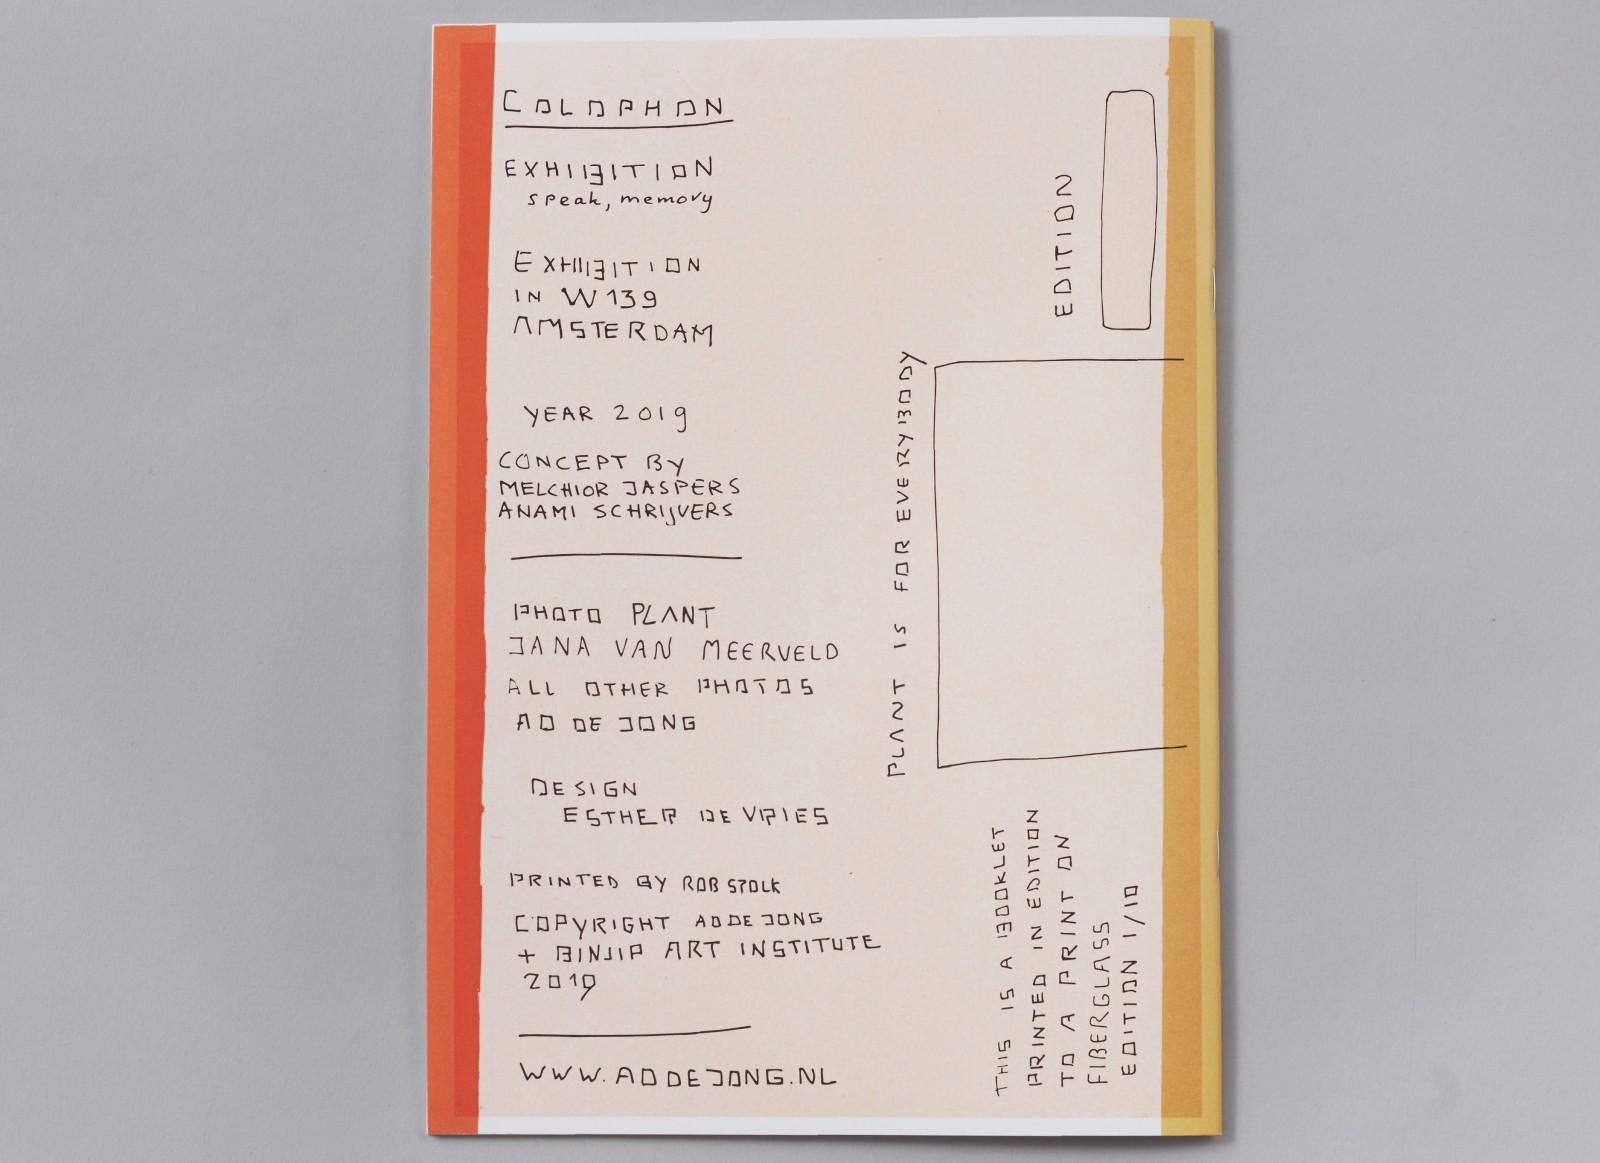 COLOPHON
EXHIBITION
speak, memory
EXHIBITION
IN W139
AMSTERDAM
YEAR 2019
CONCEPT BY
MELCHIOR JASPERS
ANAMI SCHRIJVERS
PHOTO PLANT
JANA VAN MEERVELD
ALL OTHER PHOTOS
AO DE JONG
DESIGN
ESTHER DE VRIES
PRINTED BY ROB STOLK
COPYRIGHT AO DE JONG
+ BINJIP ART INSTITUTE
2019
WWW.AODEJONG.NL
EDITION
PLANT IS FOR EVERYBODY
THIS IS A BOOKLET
PRINTED IN EDITION
TO A PRINT ON
FIBERGLASS
EDITION 1/10